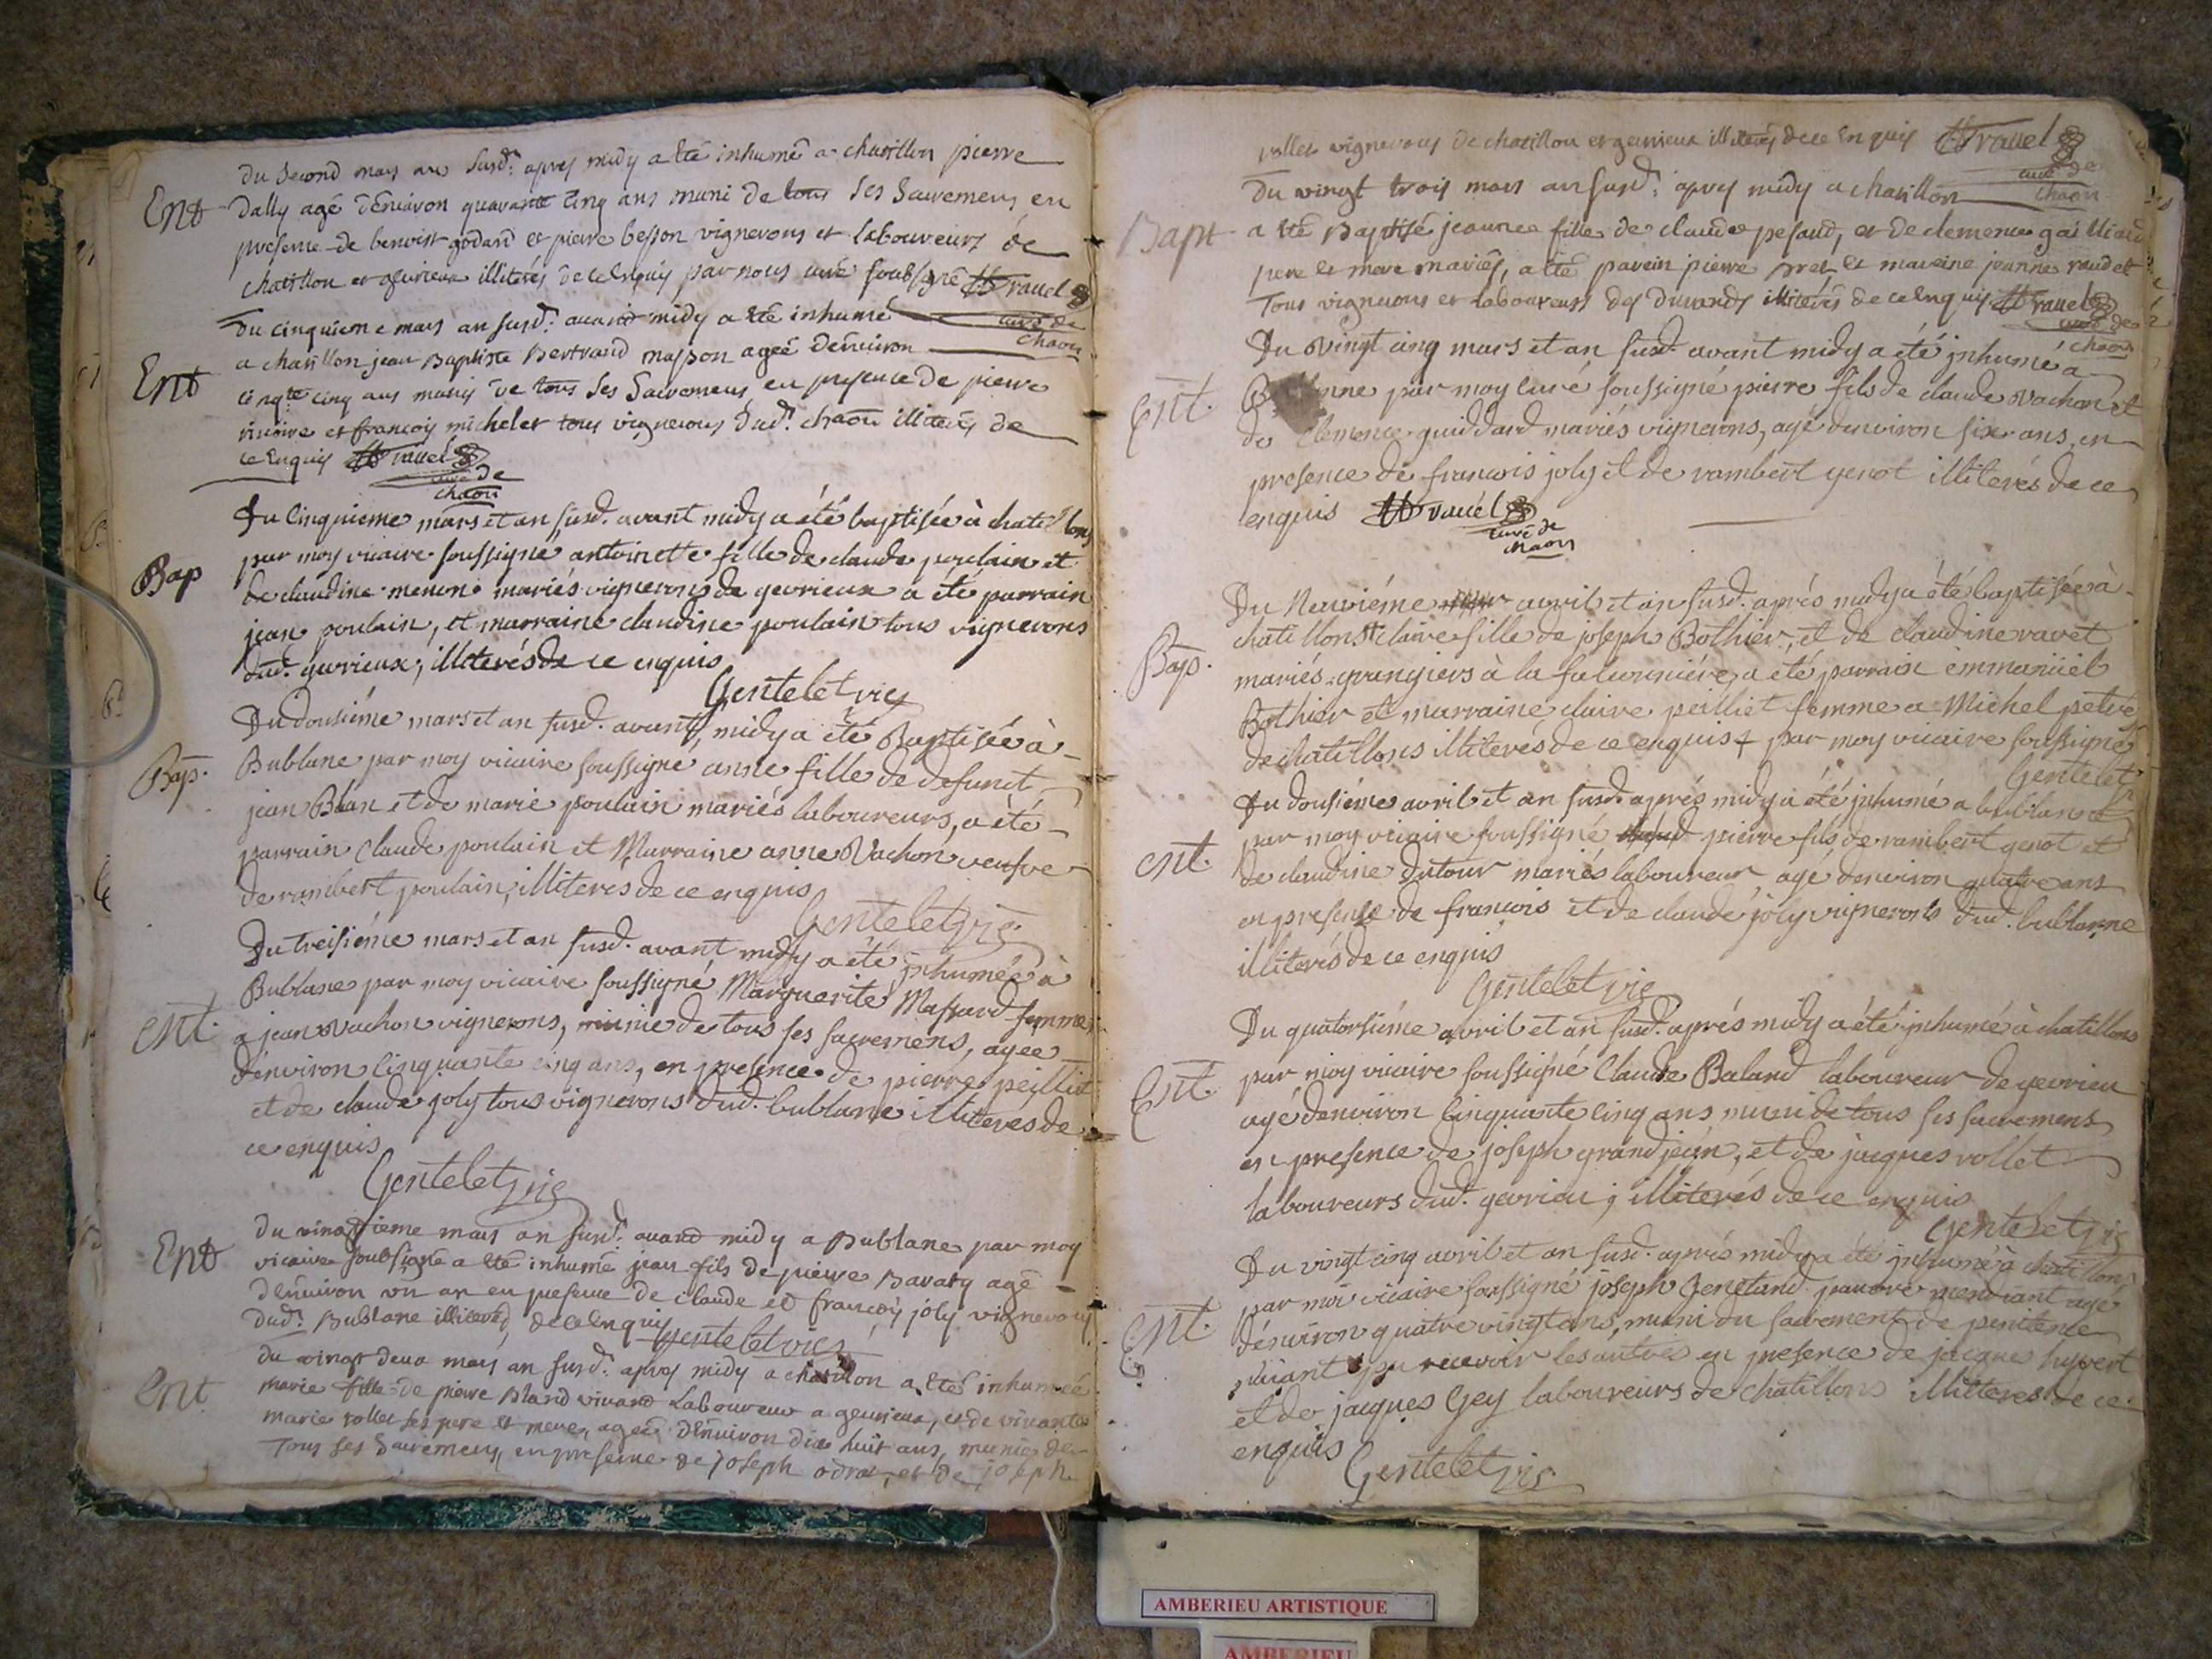 du second mars an susd. apres midy a été inhumé a chatillon pierre
Ent
dally agé dénuiron quarante cinq ans muni de tous ses sacremens en
presence de benoist godard et pierre besson vignerons et laboureurs de
chatillon et geurieux illiterés de ce enquis par nous curé soubsigné ravel
curé de
chaon
du cinquieme mars an susd. auant midy a été inhumé
Ent
a chatillon jean Baptiste Bertrand masson ageé dénuiron
cinqte cinq ans munis de tous ses sacremens en presence de pierre
et françois michelet tous vignerons dud. chaon illiterés de
ce enquis ravel
curé de
chaon
Du cinquieme mars et an susd. avant midy a été baptisée à chatillons
Bap
par moy vicaire soussigné antoinette fille de claude poulain et
de claudine menon mariés vignerons de gevrieux a été parrain
jean poulain, et marraine claudine poulain tous vignerons
dud. gevrieux, illiterés de ce enquis
Gentelet vic
Du dousiéme mars et an susd. avant midy a été Baptisée à
Bap.
Bublane par moy vicaire soussigné anne fille de defunct
jean Blan et de marie poulain mariés laboureurs, a été
parrain Claude poulain et Marraine anne Vachon veufve
de rambert poulain, illiterés de ce enquis
Gentelet vic
Du treisiéme mars et an susd. avant midy a été jnhumée à
Bublane par moy vicaire soussigné Marguerite Massard femme
Ent.
a jean Vachon vignerons, munie de tous ses sacremens, agee
dénviron cinquante cinq ans, en presence de pierre peilliet
et de claude joly tous vignerons dud. bublane illiteres de
ce enquis
Gentelet vic
du vingtieme mars an susd. auant midy a Bublane par moy
Ent
vicaire soubsigné a été inhumé jean fils de pierre Bavaty agé
dénuiron un an en presence de claude et françois joly vignerons
dud. Bublane illiterés de ce enquis
Gentelet vic
du vingt deux mars an susd. apres midy a chatillon a été inhumée
Ent
marie fille de pierre Bland vivand Laboureur a geurieux, et de vivante
marie rollet ses pere et mere, agée dénuiron dix huit ans, munie de
Tous ses sacremens, en presence de joseph odrat, et de joseph
rollet vignerons de chatillon et geurieux illiterés de ce Enquis ravel
curé de
chaon
Du vingt trois mars an susd. apres midy a chatillon
Bapt
a été Baptisé jeanne fille de claude pesaud, et de clemence gailliard
pere et mere mariés, a été parein pierre et mareine jeanne raudet
Tous vignerons et laboureurs des durands illiterés de ce enquis ravel
curé de
chaon
Du Vingt cinq mars et an susd. avant midy a été jnhumé a
Ent.
par moy curé soussigné pierre fils de claude Vachon et
de Clemence guiddard mariés vignerons, agé denviron six ans, en
presence de francois joly et de rambert genot illiterés de ce
enquis ravel
curé de
chaon
Du Neuviéme avril et an susd. aprés midy a été baptisée à
Bap.
chatillons claire fille de joseph Bothier, et de claudine ravet
mariés grangiers à la falconniére, a été parrain emmanuel
Bothier et marraine claire peilliet femme a Michel petre
de chatillons illiterés de ce enquis par moy vicaire soussigné
Gentelet
Du dousiéme avril et an susd. aprés midy a été jnhumé a bublane
Ent.
par moy vicaire soussigné pierre fils de rambert genot et
de claudine dutour mariés laboureur, agé denviron quatre ans
en presence de francois et de claude joly vignerons dud. bublanne
illiterés de ce enquis
Gentelet vic
Du quatorsiéme avril et an susd. aprés midy a été jnhumé à chatillons
Ent.
par moy vicaire soussigné Claude Baland laboureur de gevrieu
agé denviron cinquante cinq ans muni de tous ses sacremens
en presence de joseph grandjean, et de jacques rollet
laboureurs dud. gevrieu, illiterés de ce enquis
Gentelet vic
Du vingt cinq avril et an susd. aprés midy a été jnhumé à chatillon
Ent.
par moi vicaire soussigné joseph Genetand pauvre mendiant agé
dénviron quatre vingt ans, muni du sacrement de penitence
n'aiant pu recevoir les autres en presence de jacques huvert
et de jacques Gey laboureurs de chatillons illiteres de ce
enquis
Gentelet vic
AMBERIEU ARTISTIQUE
AMBERIEU